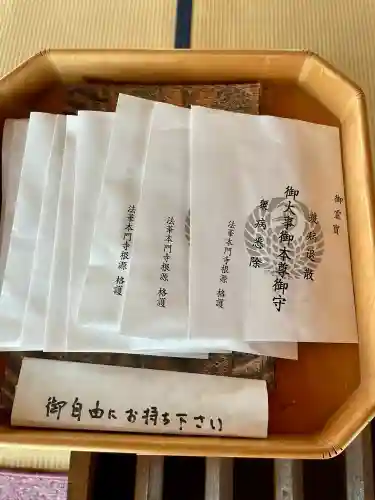 御霊寶
疫病退散
御大事御本尊御守
無病息除
法華本門寺根源 格護
法華本門寺根源 格護
法華本門寺根源 格護
御自由にお持ち下さい